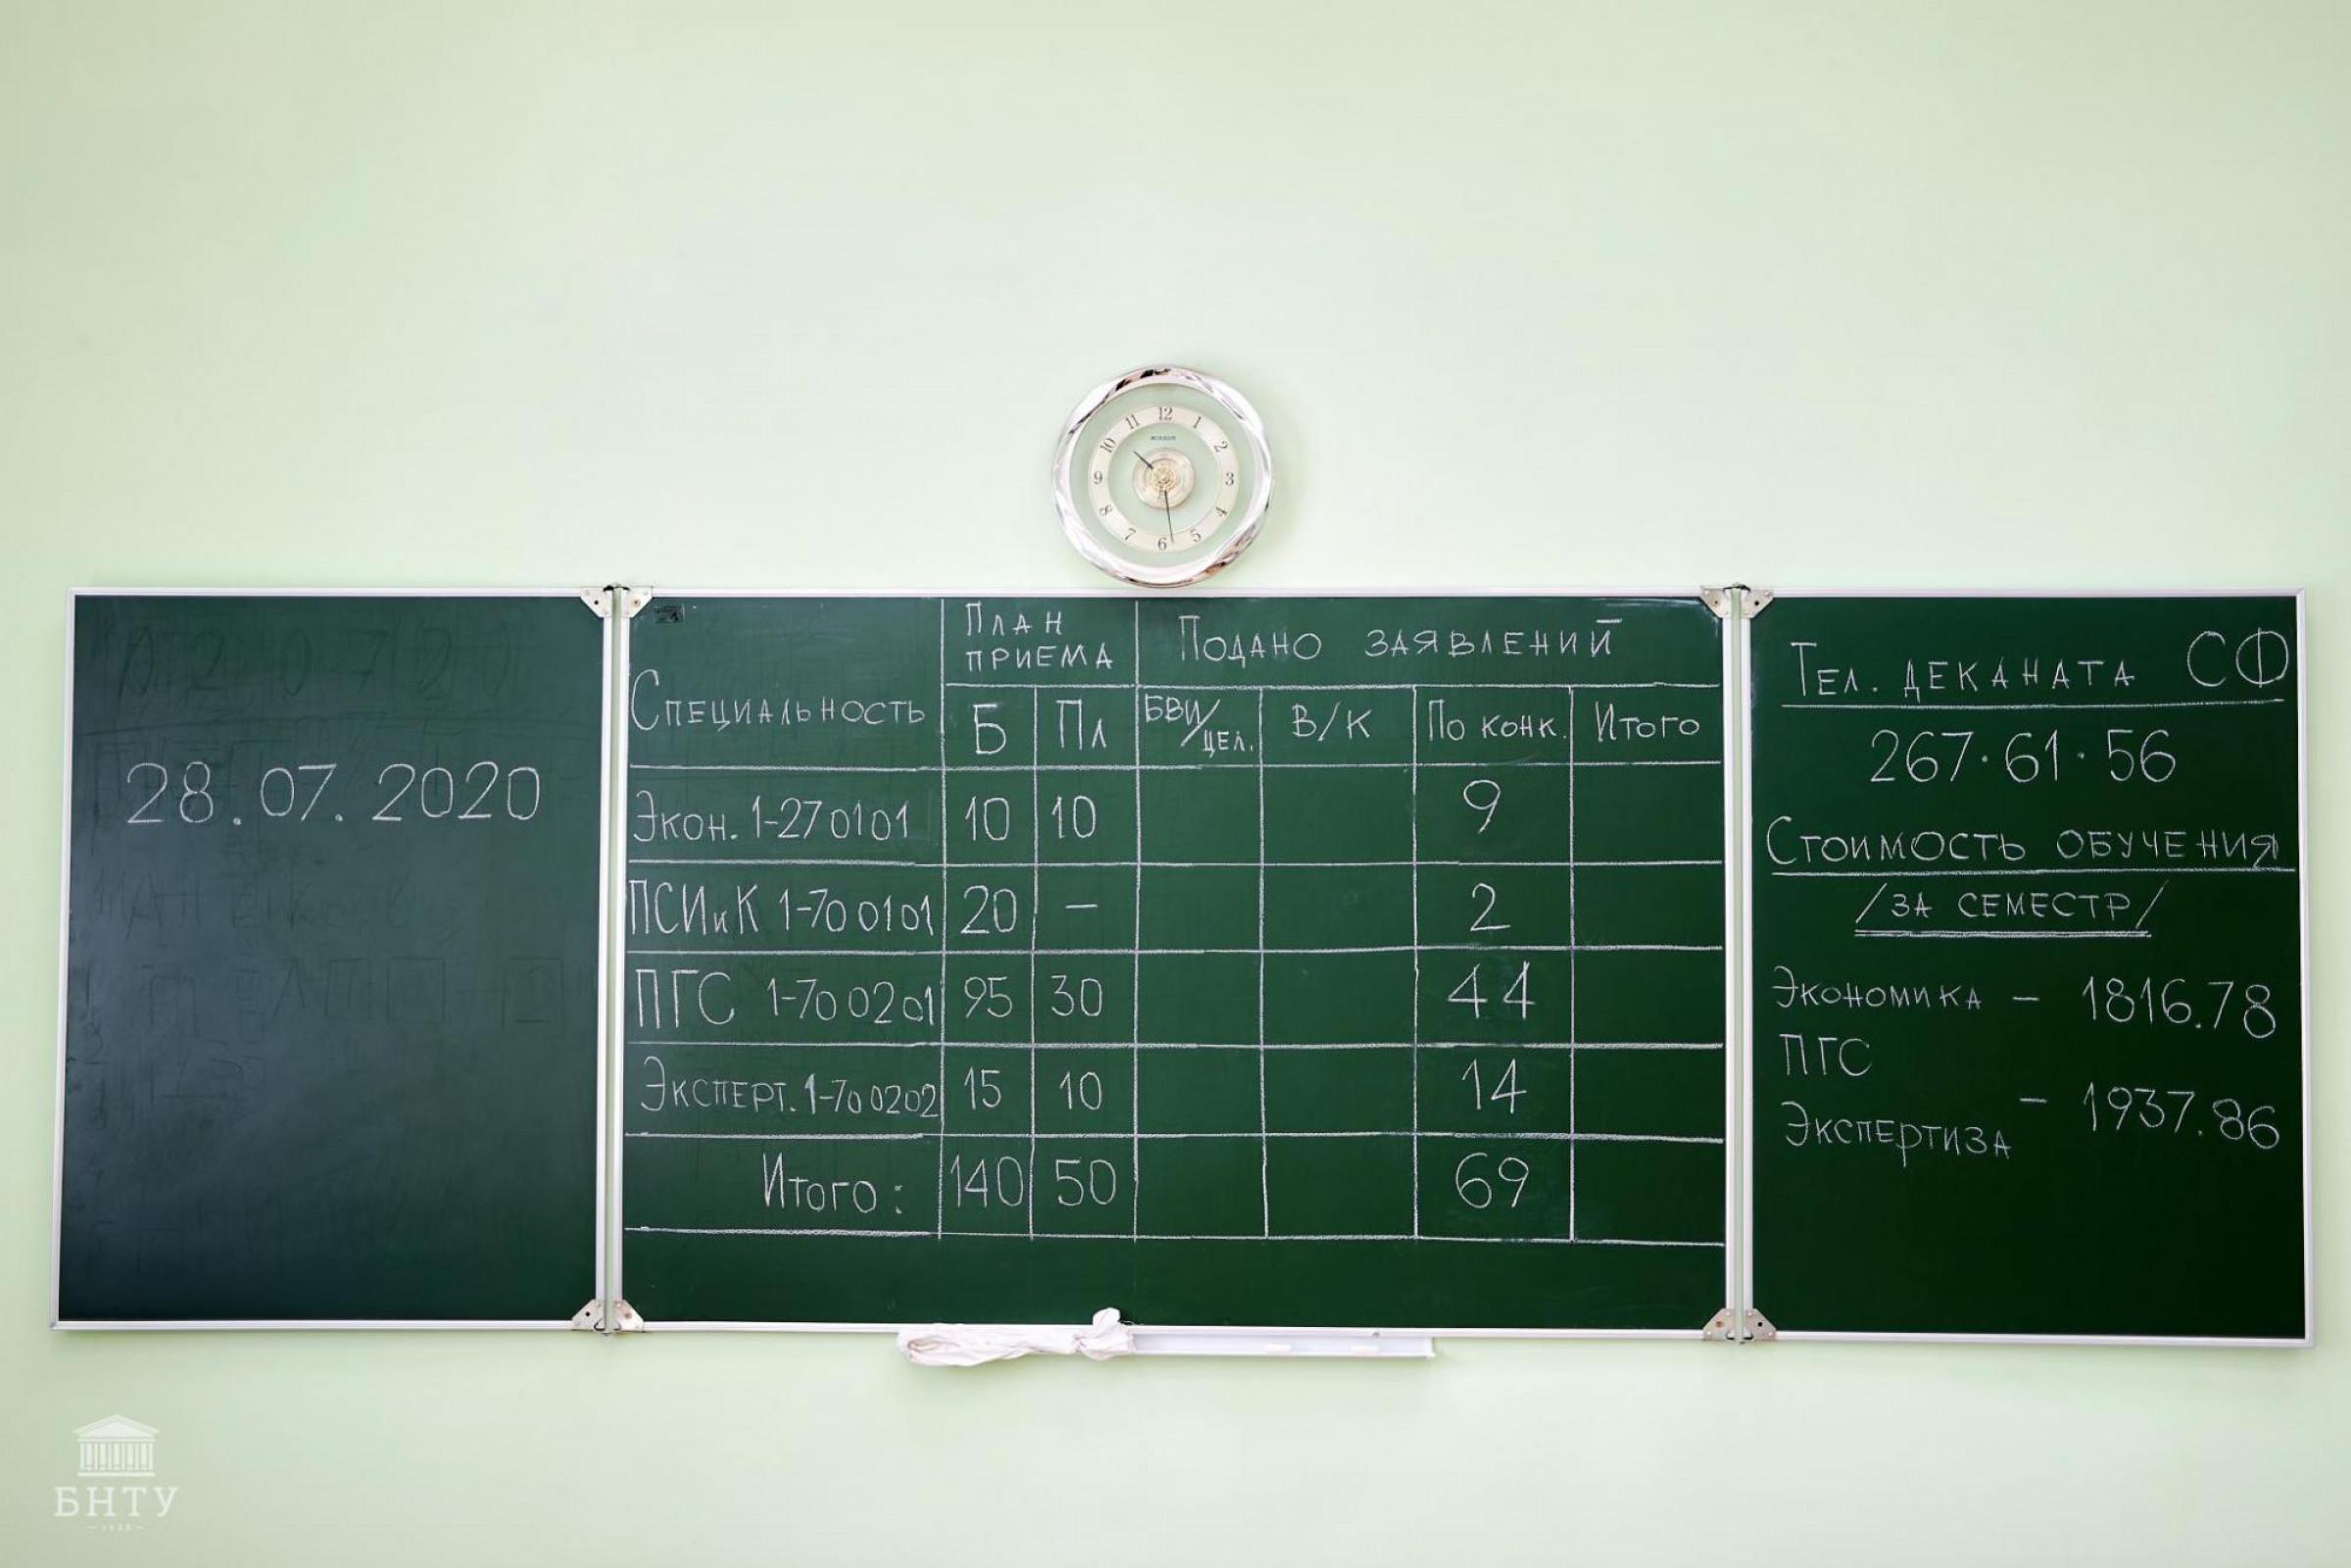 12
11 1
10 2
9 3
8 4
7 6 5
28.07.2020
План приема Подано заявлений
Специальность Б Пл БВИ/цел. В/К По конк. Итого
Экон. 1-27 01 01 10 10 9
ПСИиК 1-70 01 01 20 – 2
ПГС 1-70 02 01 95 30 44
Эксперт. 1-70 02 02 15 10 14
Итого: 140 50 69
Тел. деканата СФ
267·61·56
Стоимость обучения
/за семестр/
Экономика – 1816.78
ПГС
Экспертиза – 1937.86
БНТУ